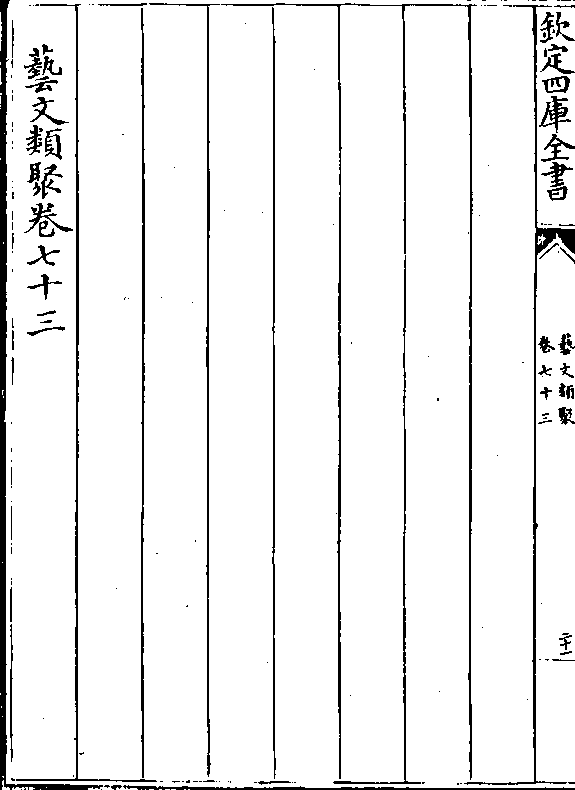 欽定四庫全書
藝文類聚
卷七十三
二十一
藝文類聚卷七十三